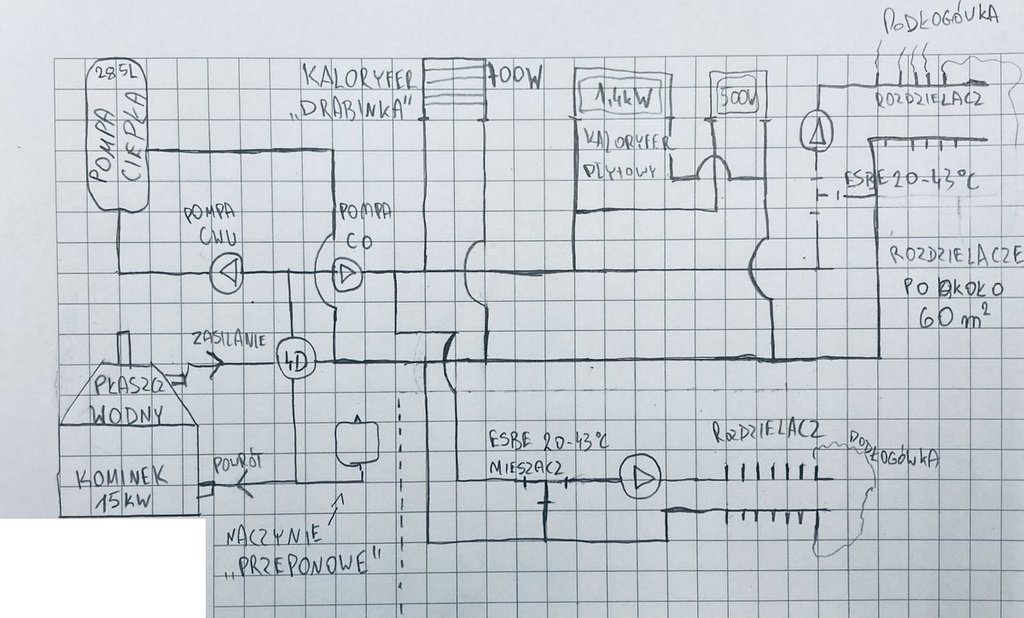 PODŁOGÓWKA
285L
POMPA
CIEPŁA
KALORYFER
„DRABINKA"
700W
1,4kW
500W
ROZDZIELACZ
KALORYFER
PŁYTOWY
ESBE 20-43°C
POMPA
CWU
POMPA
CO
ROZDZIELACZE
PO OKOŁO
60 m²
ZASILANIE
4D
PŁASZCZ
WODNY
KOMINEK
15kW
POWRÓT
NACZYNIE
„PRZEPONOWE"
ESBE 20-43°C
MIESZACZ
ROZDZIELACZ
PODŁOGÓWKA